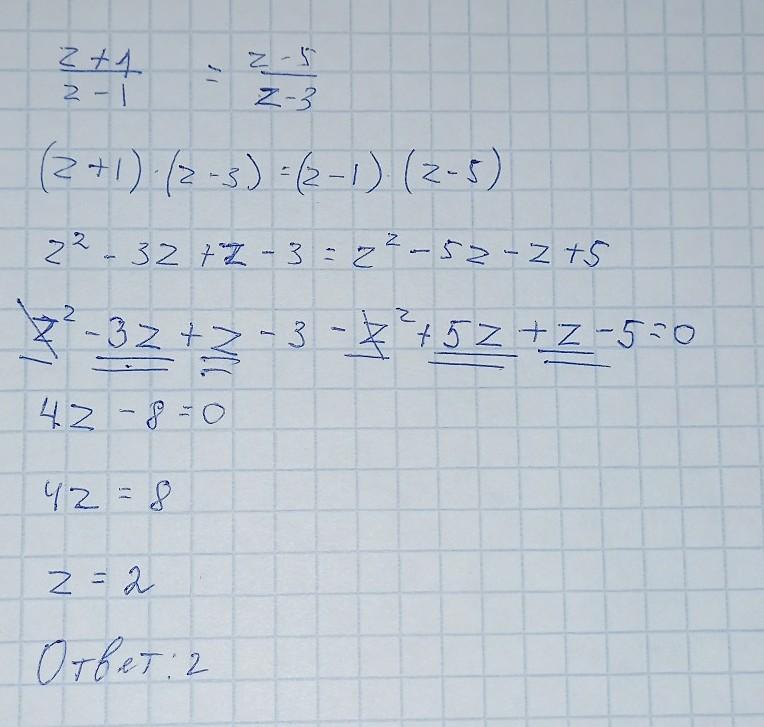 z+1/z-1 = z-5/z-3
(z+1)·(z-3)=(z-1)·(z-5)
z²-3z+z-3=z²-5z-z+5
z²-3z+z-3-z²+5z+z-5=0
4z-8=0
4z=8
z=2
Ответ: 2